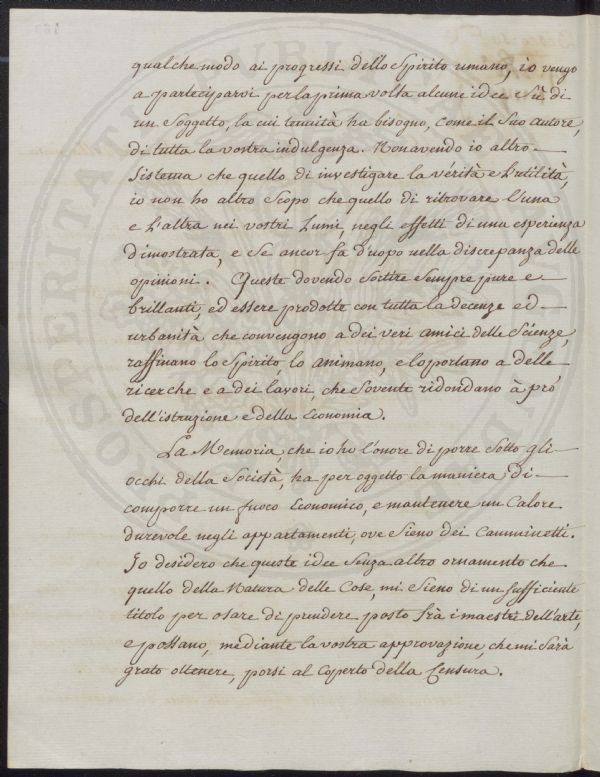 qualche modo ai progressi dello Spirito umano, io vengo
a parteciparvi per la prima volta alcune idee Sù di
un Soggetto, la cui tenuità ha bisogno, come il Suo autore,
di tutta la vostra indulgenza. Non avendo io altro
Sistema che quello di investigare la vérità e l'utilità,
io non ho altro Scopo che quello di ritrovare l'una
e l'altra nei vostri Lumi, negli effetti di una esperienza
dimostrata, e Se ancor fa d'uopo nella discrepanza delle
opinioni. Queste dovendo Sortire Sempre pure e
brillanti, ed essere prodotte con tutta la decenza ed
urbanità che convengono a dei veri amici delle Scienze,
raffinano lo Spirito, lo animano, e lo portano a delle
ricerche e a dei lavori, che Sovente ridondano à prò
dell'istruzione e della Economia.
La Memoria, che io ho l'onore di porre Sotto gli
occhi della Società, ha per oggetto la maniera di
comporre un fuoco Economico, e mantenere un Calore
durevole negli appartamenti, ove Sieno dei Camminetti.
Io desidero che queste idee Senza altro ornamento che
quello della Natura delle Cose, mi Sieno di un Sufficiente
titolo per osare di prendere posto frà i maestri dell'arte,
e possano, mediante la vostra approvazione, che mi Sarà
grato ottenere, porsi al Coperto della Censura.